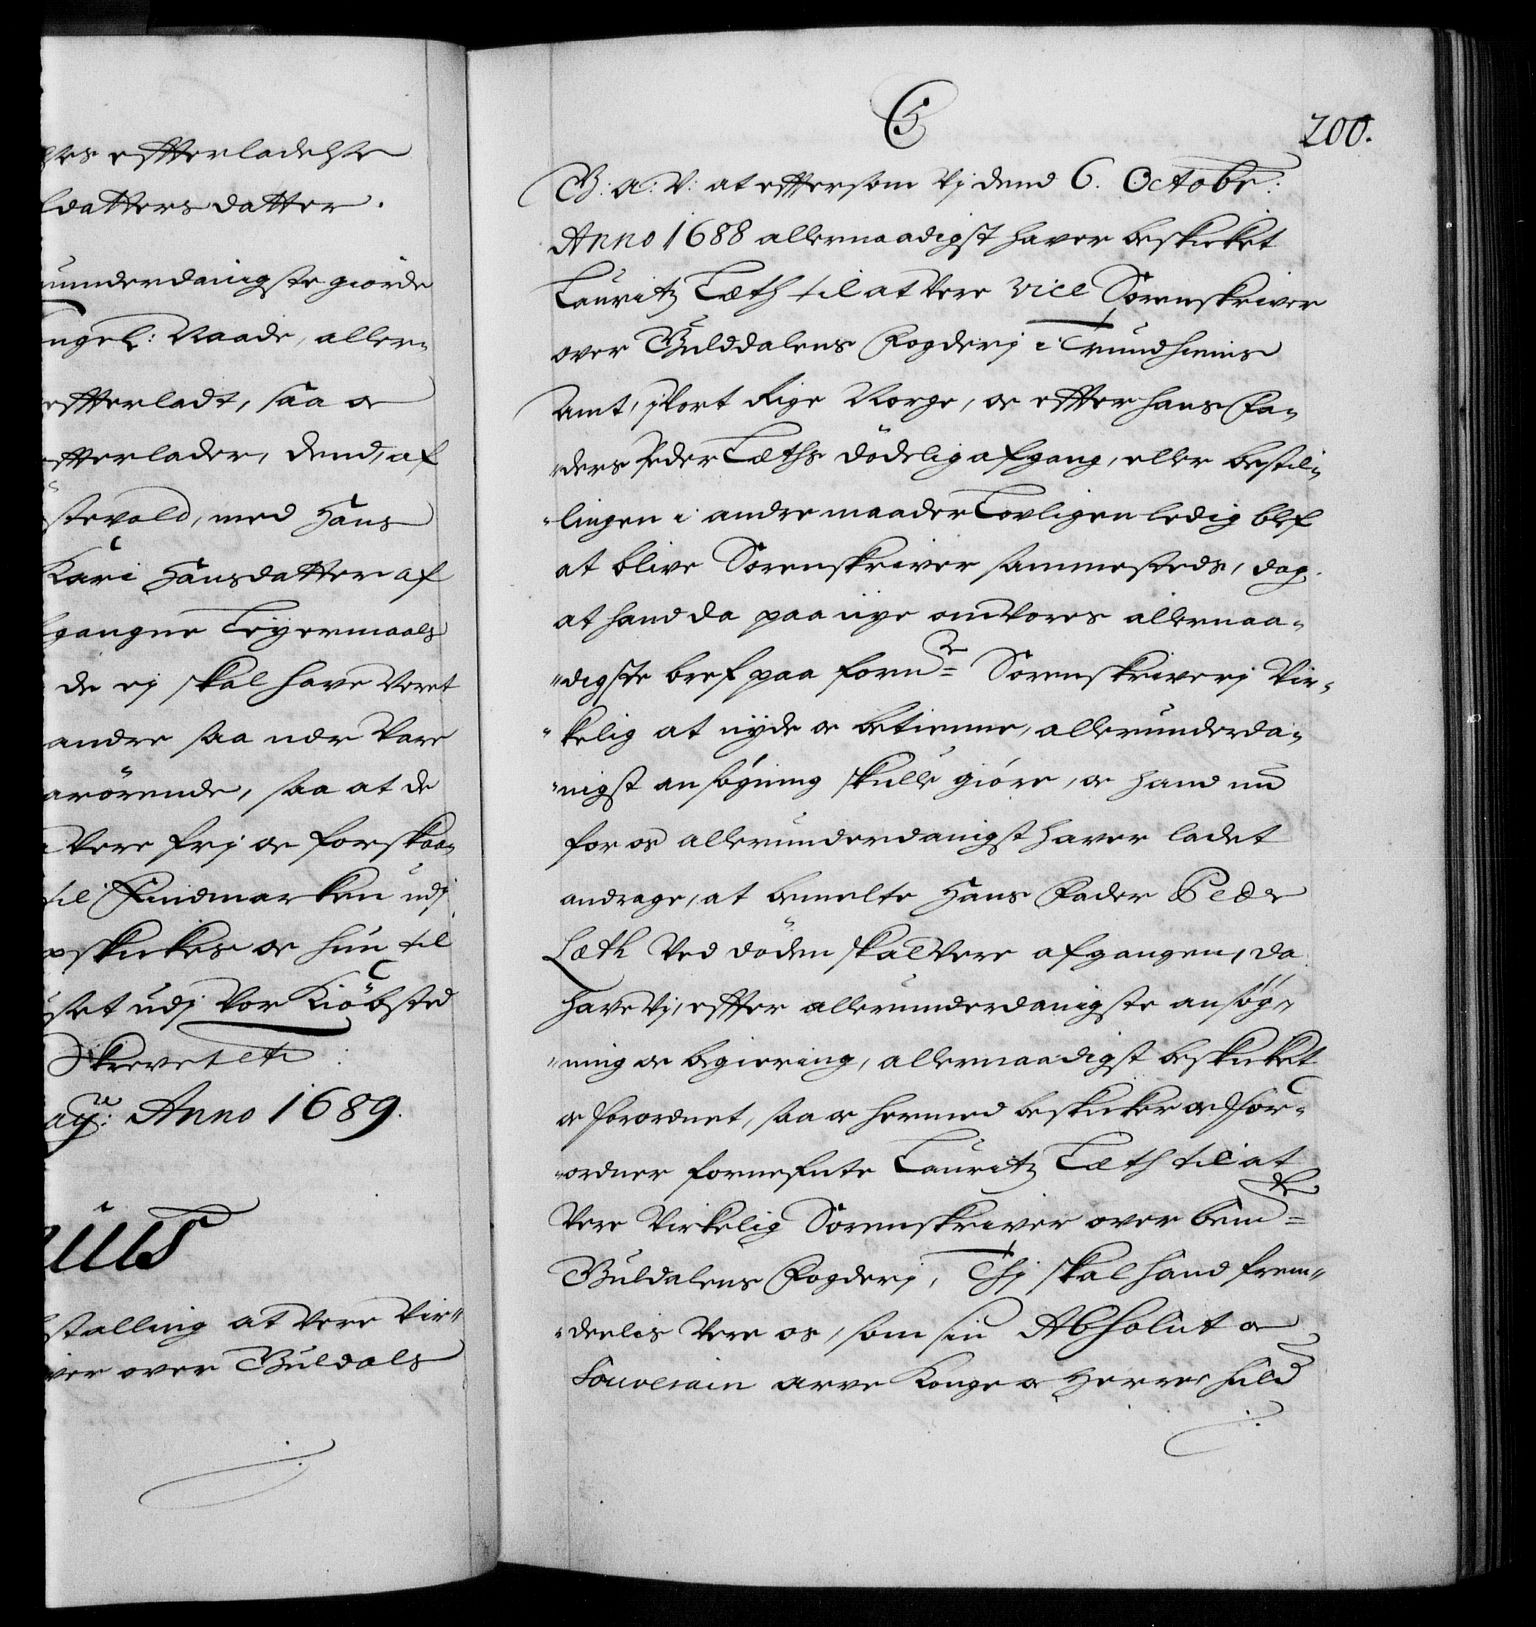 es effterladelse
datters datter.
underdanigste giörde
ngel: Naade, aller-
effterladt, saa oc
effterlader, dend, af
stevold, med Hans
Kari Hansdatter af
gangne Leyermaals
de ej skal have veret
andre saa nær vare
arörende, saa at de
vere frj oc forskaa-
til Findmarken udj
skickes oc hun til
set udj vor Kiöbsted
Skrevet etc
ay: Anno 1689.
stalling at vere vir-
ver over Guldals
C5
200.
G: A: V: at eftersom Vj dend 6. Octobr:
Anno 1688 allernaadigst haver beskicket
Lauritz Læth til at vere vice Sorenskriver
over Gulddalens Fogderj i Trundhiems
Amt, i Vort Rige Norge, oc effter hans Fa-
ders Peder Læths dödelig afgang, eller bestil-
lingen i andre maader Lovligen ledig blef
at blive Sorenskriver sammesteds, dog
at hand da paa nye om Vores allernaa-
digste bref paa forne Sorenskriverj Vir-
kelig at nyde oc betienne, allerunderda-
nigst ansögning skulle giöre, oc hand nu
for os allerunderdanigst haver ladet
andrage, at bemelte Hans Fader Peder
Læth Ved döden skal vere afgangen, da
have Vj, effter allerunderdanigste ansög-
ning oc begiering, allernaadigst beskicket
oc forordnet, saa oc hermed beskicker oc for-
ordner fornefnte Lauritz Læth til at
Vere Virkelig Sorenskriver over bemte
Guldalens Fogderj, Thj skal hand frem-
deelis Vere os, som sin Absolut oc
Souverain arve Konge oc Herre, huld